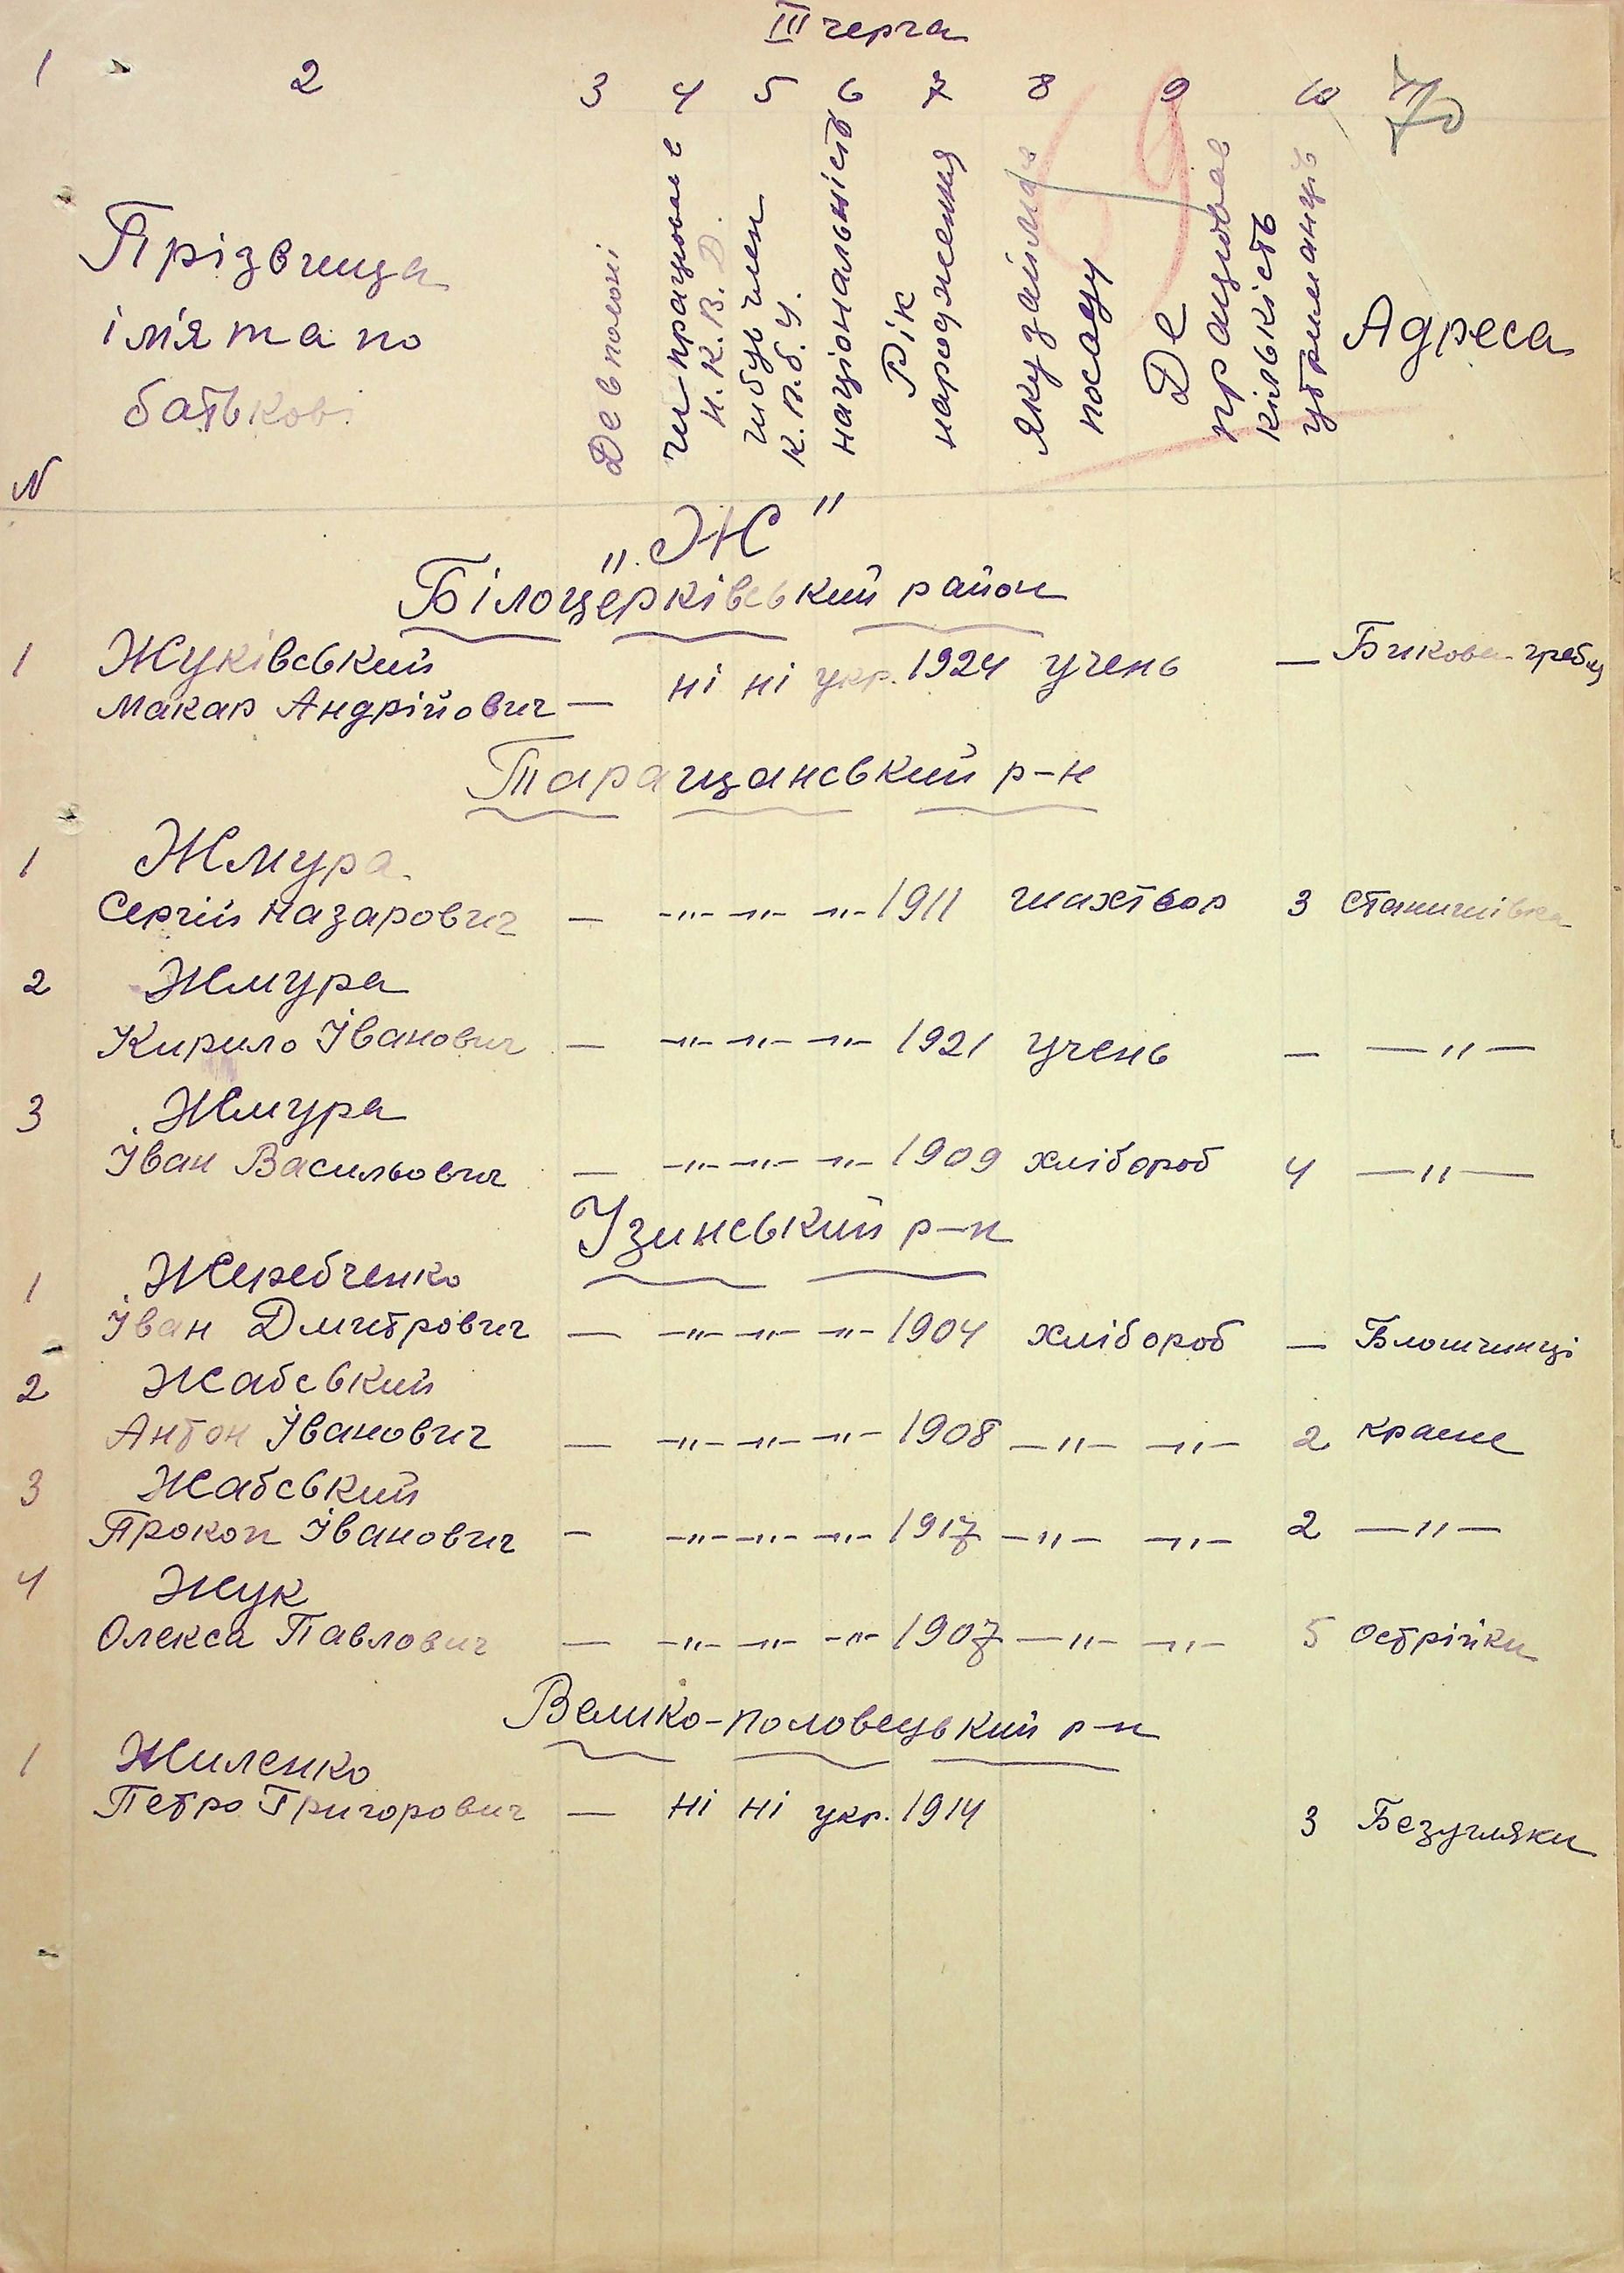 III черга
1 2 3 4 5 6 7 8 9 10 70
N
Прізвища
ім'я та по
батькові
Де в полоні
чи працював в
Н.К.В.Д.
чи був член
К.П.б.У.
національність
Рік
народження
Яку займав
посаду
Де
працював
кількість
утриманців
Адреса
„Ж"
Білоцерківський район
1 Жуківський
Макар Андрійович — ні ні укр. 1924 учень — Бикова-гребля
Таращанський р-н
1 Жмура
Сергій Назарович — -"- -"- -"- 1911 3 Станишівка
2 Жмура
Кирило Іванович — -"- -"- -"- 1921 учень — —"—
3 Жмура
Іван Васильович — -"- -"- -"- 1909 хлібороб 4 —"—
Узинський р-н
1 Жеребченко
Іван Дмитрович — -"- -"- -"- 1904 хлібороб — Блошчинці
2 Жабський
Антон Іванович — -"- -"- -"- 1908 -"- -"- 2 красне
3 Жабський
Прокоп Іванович - -"- -"- -"- 1917 -"- -"- 2 —"—
4 Жук
Олекса Павлович — -"- -"- -"- 1907 —"- -"- 5 Острійки
Велико-половецький р-н
1 Жиленко
Петро Григорович — ні ні укр. 1914 3 Безугляки